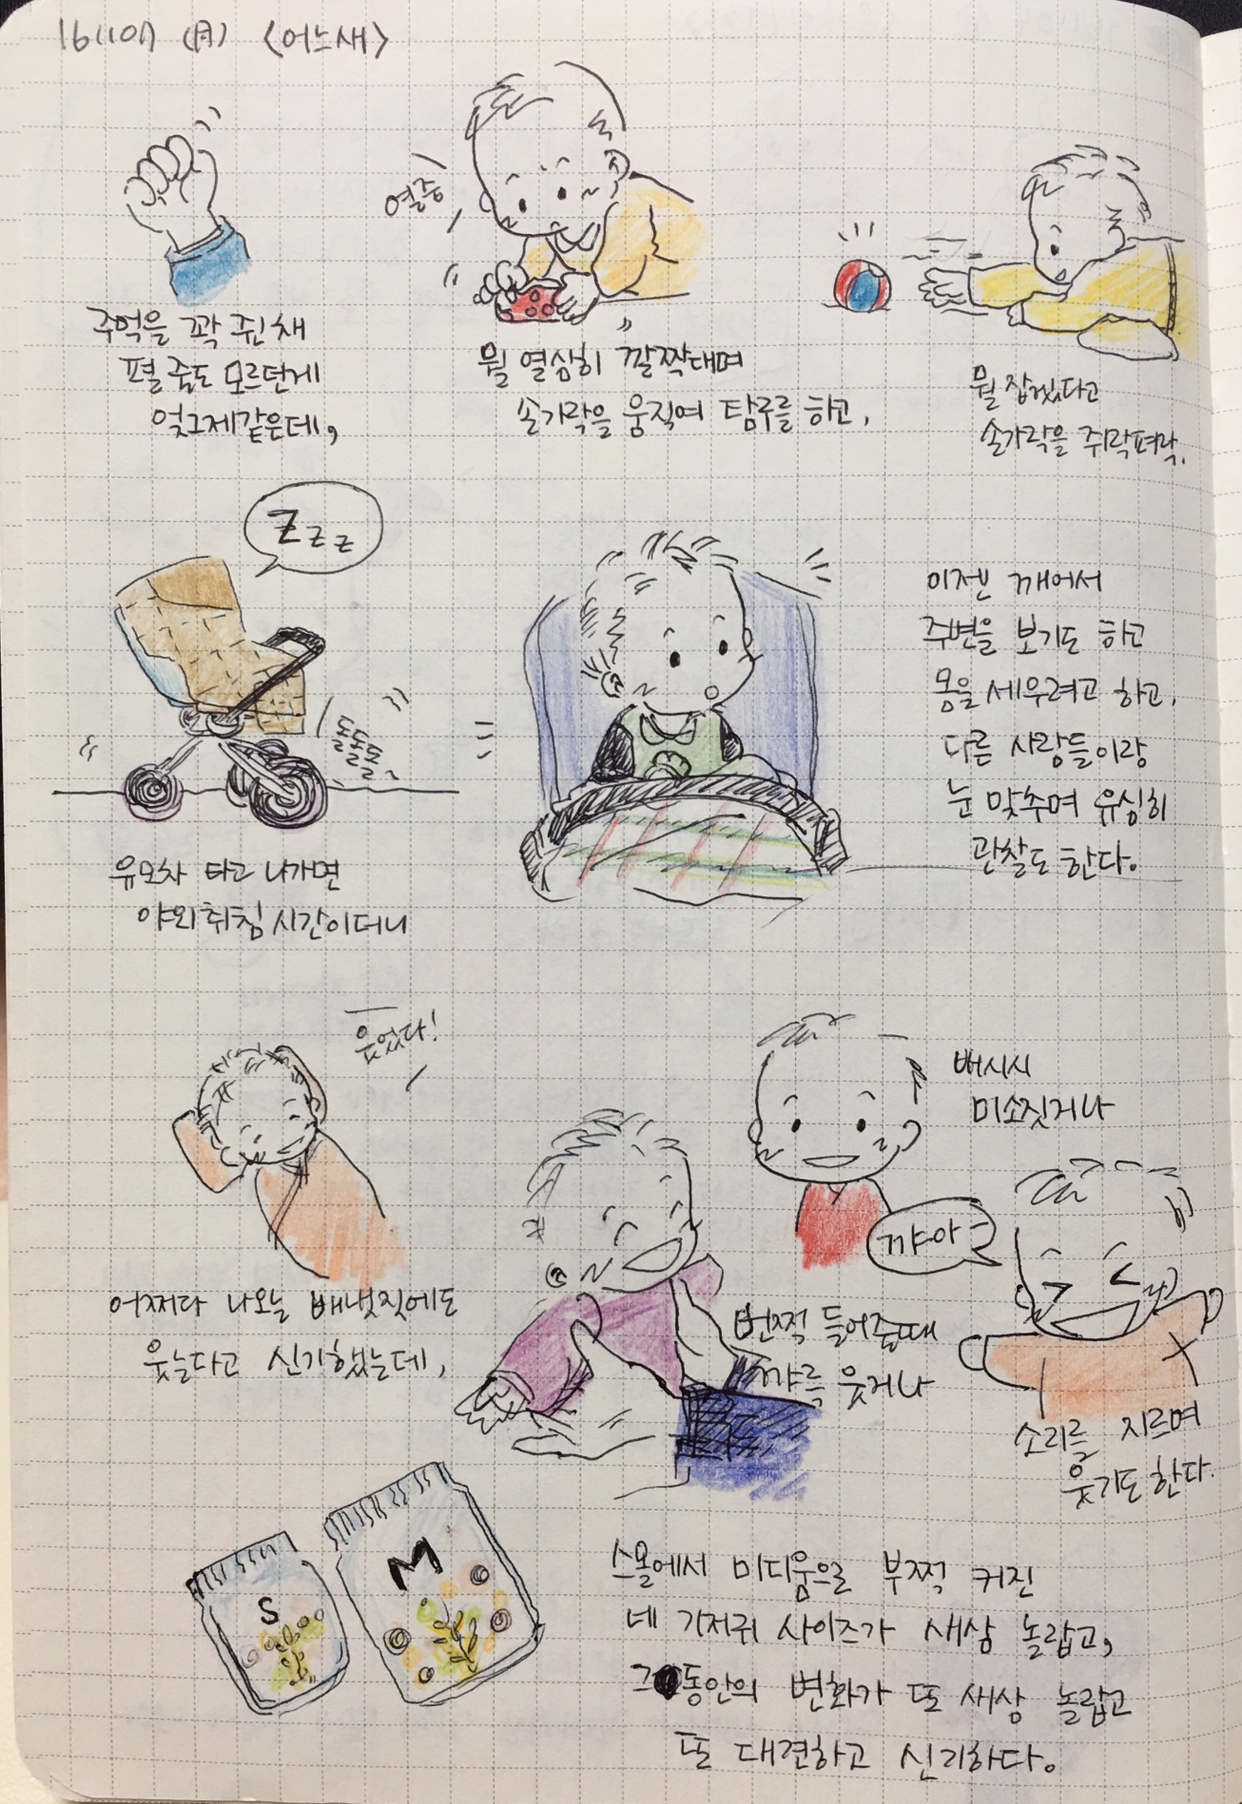 161107 (月) <어느새>
주먹을 꽉 쥔 채
펼 줄도 모르던게
엊그제같은데,
열중
뭘 열심히 깔짝대며
손가락을 움직여 탐구를 하고,
뭘 잡겠다고
손가락을 쥐락펴락.
Z z z
돌돌돌~
유모차 타고 나가면
야외취침 시간이더니
이젠 깨어서
주변을 보기도 하고
몸을 세우려고 하고,
다른 사람들이랑
눈 맞추며 유심히
관찰도 한다.
웃었다!
어쩌다 나오는 배냇짓에도
웃는다고 신기했는데,
배시시
미소짓거나
번쩍 들어줄때
꺄륵 웃거나
꺄아
소리를 지르며
웃기도 한다.
S
M
스몰에서 미디움으로 부쩍 커진
네 기저귀 사이즈가 새삼 놀랍고,
그동안의 변화가 또 새삼 놀랍고
또 대견하고 신기하다.